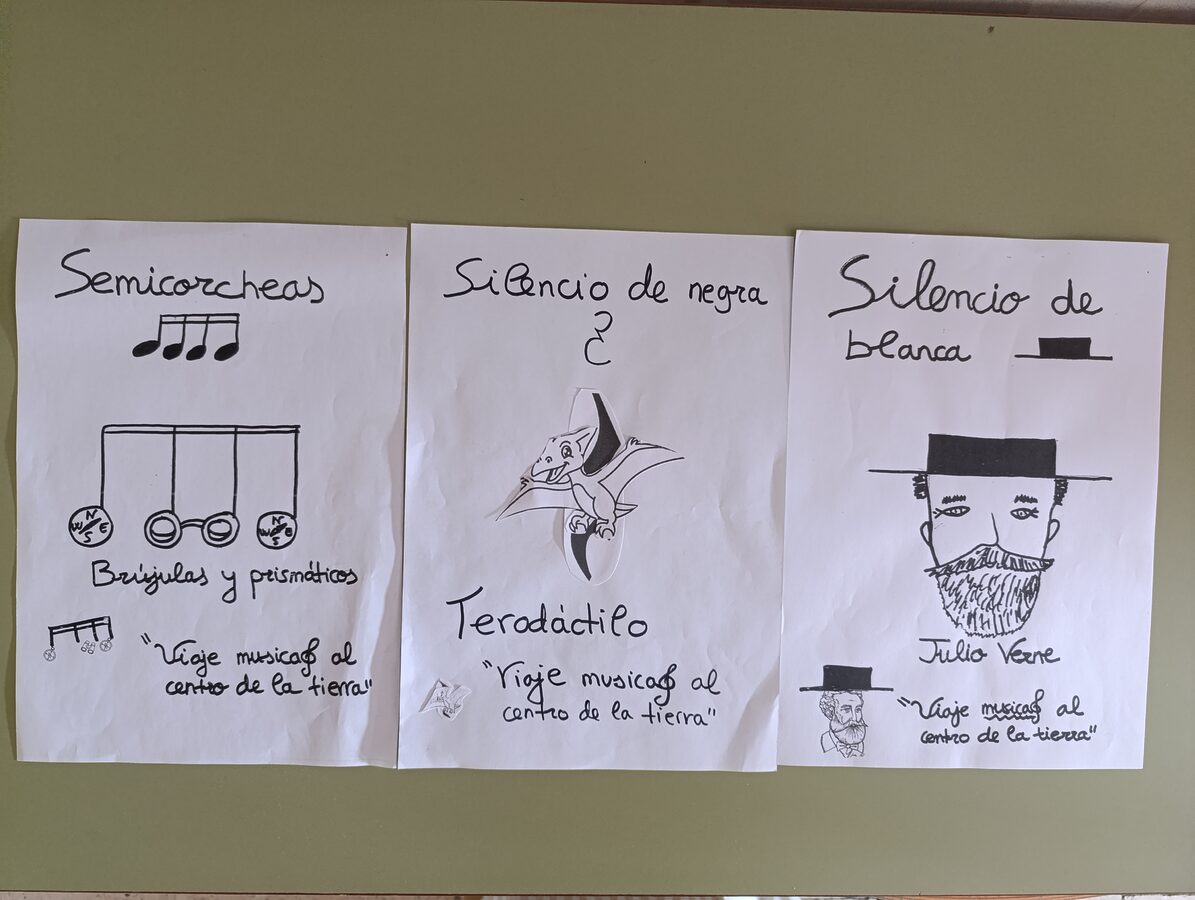 Semicorcheas
N
W E
S
N
W E
S
Brújulas y prismáticos
"Viaje musical al
centro de la tierra"
Silencio de negra
Terodáctilo
"Viaje musical al
centro de la tierra"
Silencio de
blanca
Julio Verne
"Viaje musical al
centro de la tierra"